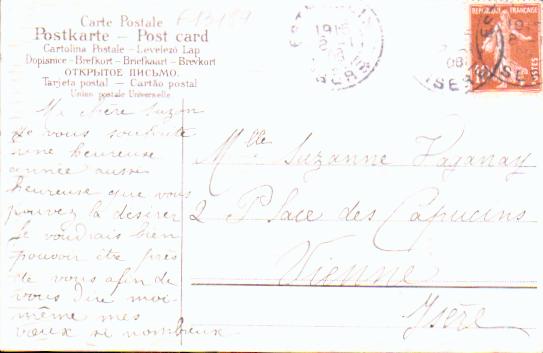 Carte Postale
Postkarte — Post card
Cartolina Postale - Levelező Lap
Dopisnice - Brefkort - Briefkaart - Brevkort
ОТКРЫТОЕ ПИСЬМО.
Tarjeta postal - Cartão postal
Union postale Universelle
RÉPUBLIQUE FRANÇAISE
Ma chère Suzon
Je vous souhaite
une heureuse
année aussi
heureuse que vous
pouvez la désirer
Je voudrais bien
pouvoir être près
de vous afin de
vous dire moi-
même mes
vœux si nombreux
Mlle Suzanne Vaganay
2 Place des Capucins
Vienne
Isère